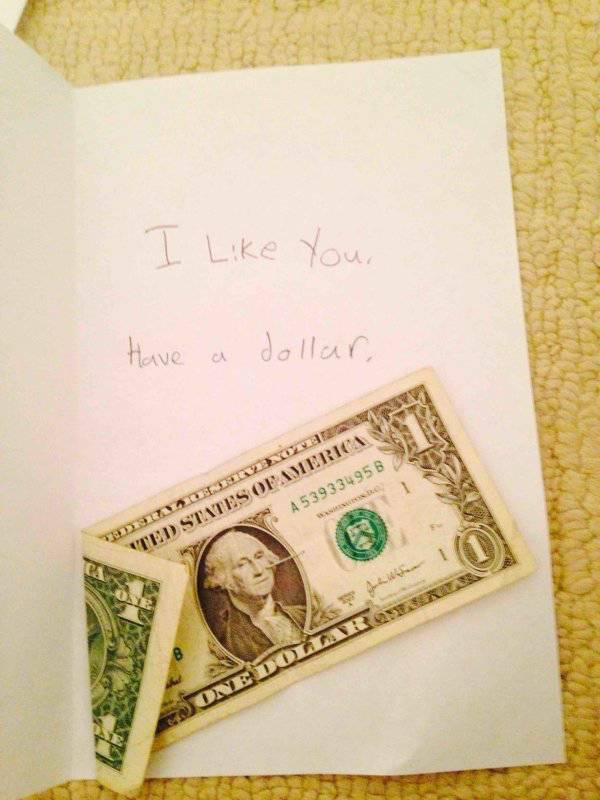 I Like You.
Have a dollar.
FEDERAL RESERVE NOTE
TED STATES OF AMERICA
A 53933495 B
WASHINGTON, D.C.
1
1
1
1
B
ONE DOLLAR
CA
ONE
1